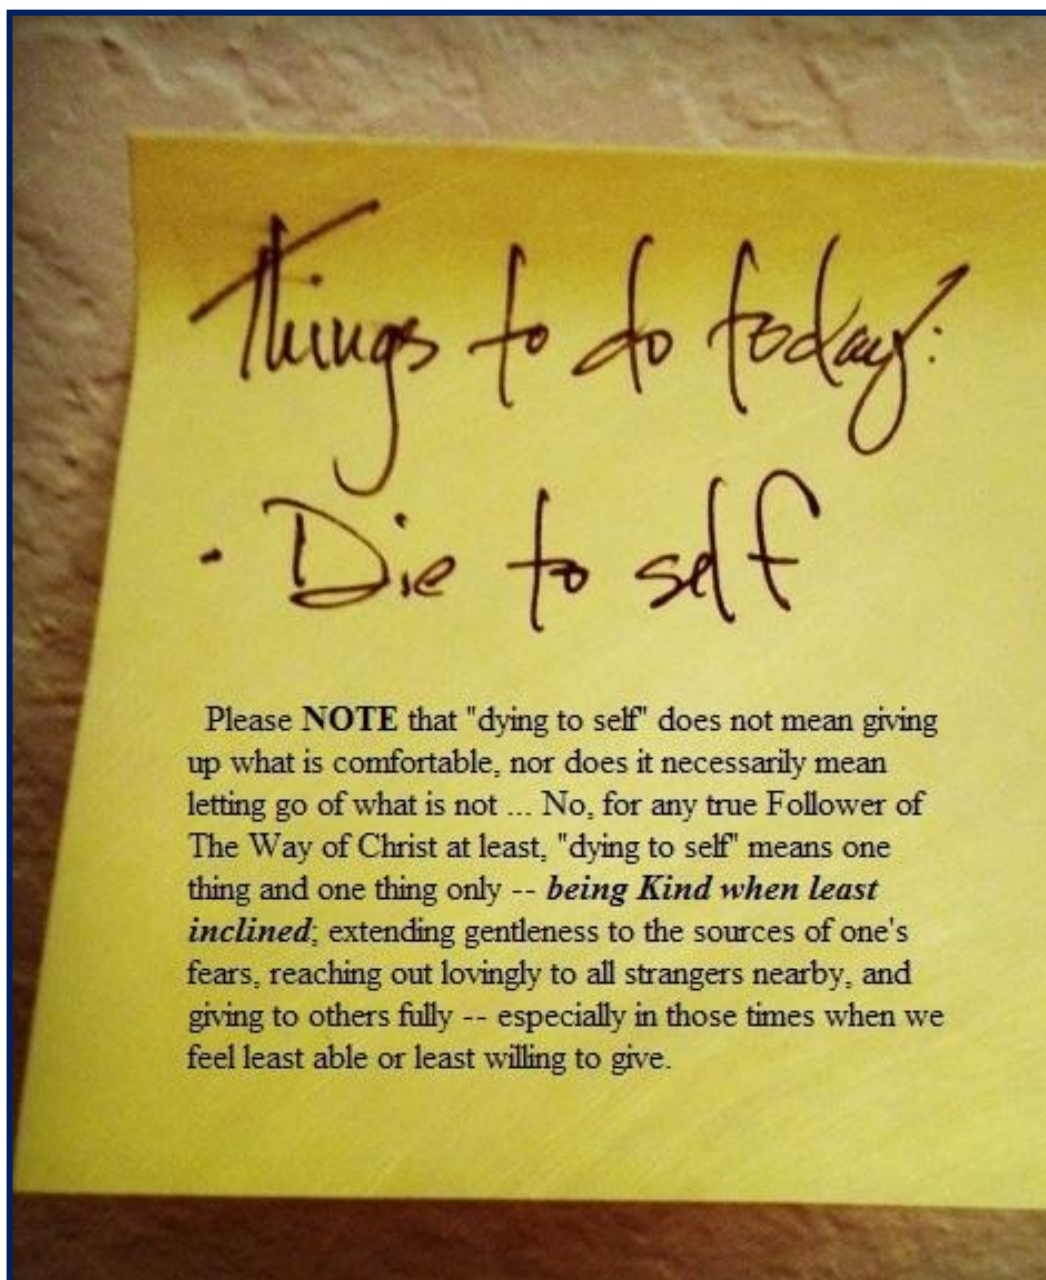 Things to do today:
· Die to self
Please NOTE that "dying to self" does not mean giving
up what is comfortable, nor does it necessarily mean
letting go of what is not ... No, for any true Follower of
The Way of Christ at least, "dying to self" means one
thing and one thing only -- being Kind when least
inclined; extending gentleness to the sources of one's
fears, reaching out lovingly to all strangers nearby, and
giving to others fully -- especially in those times when we
feel least able or least willing to give.